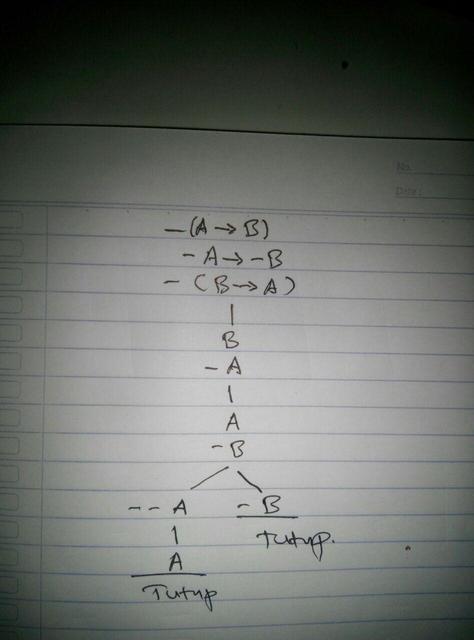 No.
Date:
-(A → B)
- A → - B
- (B → A)
|
B
- A
|
A
- B
- - A - B
| Tutup.
A
Tutup